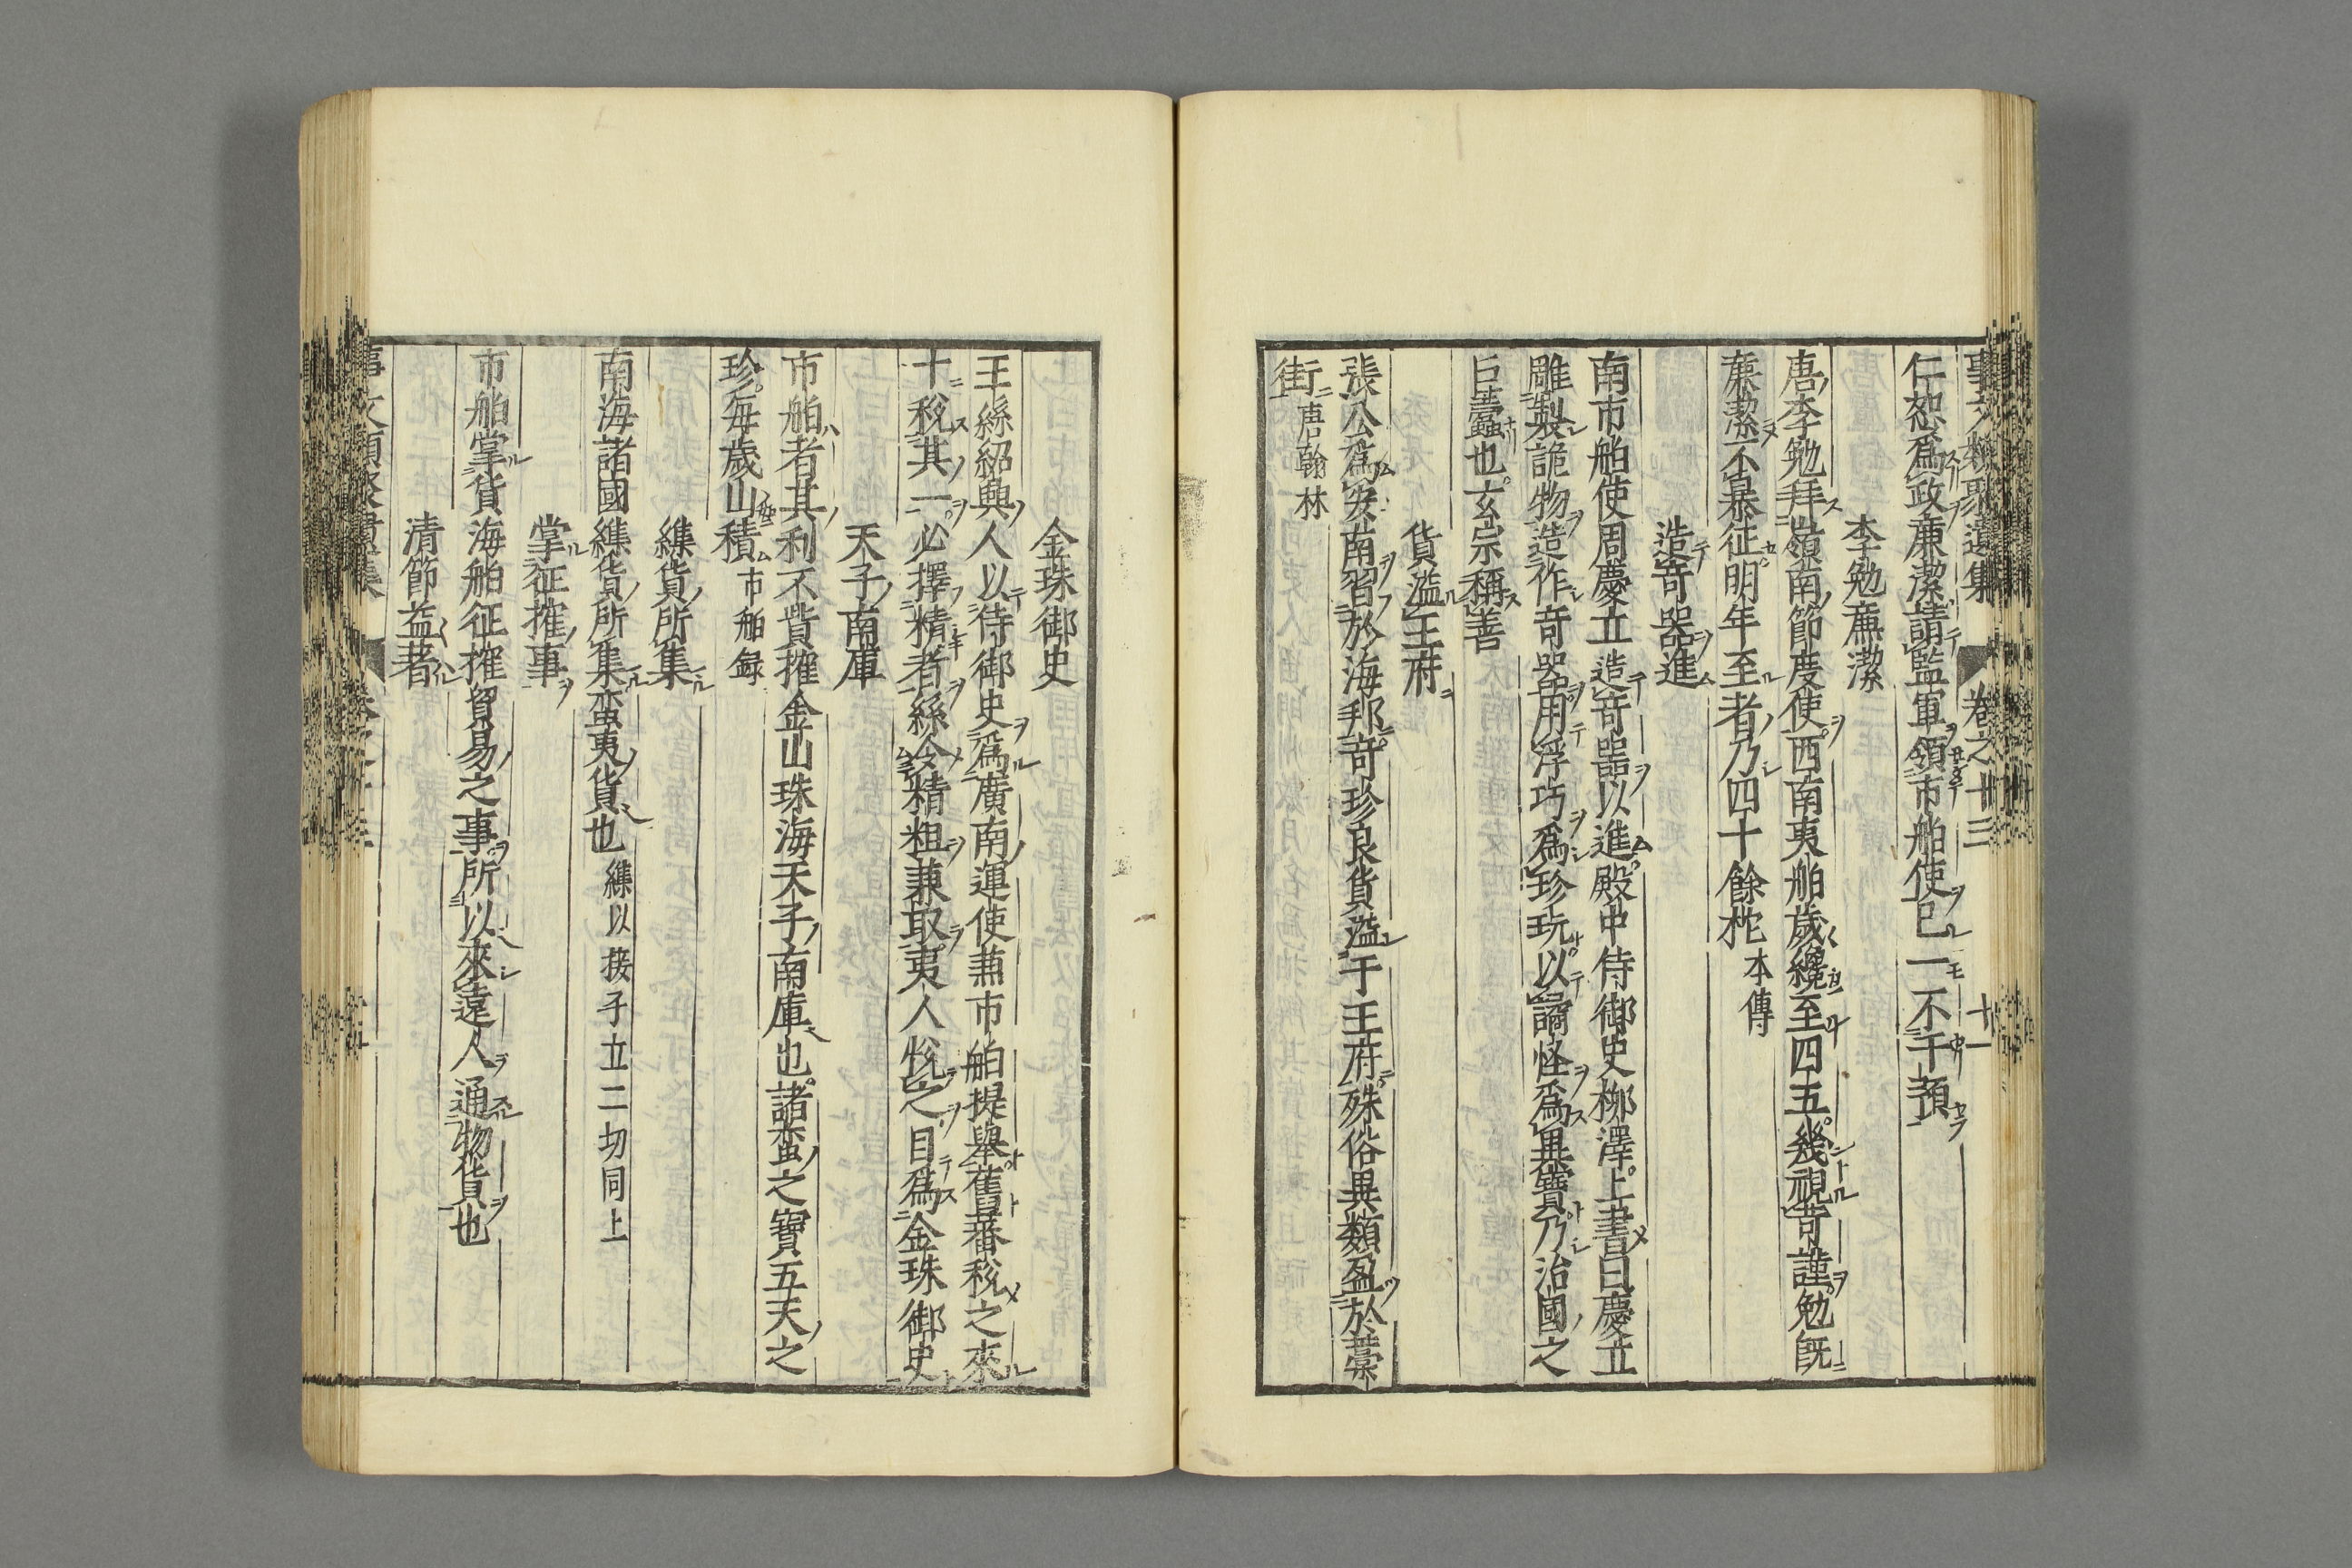 事文類聚遺集 卷之十三 十一
仁恕爲政廉潔請監軍領市舶使已一不干預
李勉廉潔
唐李勉拜嶺南節度使西南夷舶歲纔至四五幾視苛謹勉旣
廉潔不暴征明年至者乃四十餘柁 本傳
造奇器進
南市舶使周慶立造奇器以進殿中侍御史柳澤上書曰慶立
雕製詭物造作奇器用浮巧爲珍玩以譎怪爲異寶乃治國之
巨蠹也玄宗稱善
貨溢王府
張公爲安南習於海邦奇珍良貨溢于王府殊俗異類盈於藁
街 唐翰林
金珠御史
王絲紹興人以侍御史爲廣南運使兼市舶提舉舊蕃稅之來
十稅其一必擇精者絲令精粗兼取夷人悅之目爲金珠御史
天子南庫
市舶者其利不貲搉金山珠海天子南庫也諸蛮之寶五天之
珍每歲山積 市舶録
㠍貨所集
南海諸國㠍貨所集蛮夷貨也 㠍以接子立二切同上
掌征搉事
市舶掌貨海舶征搉貿易之事所以來遠人通物貨也
清節益著